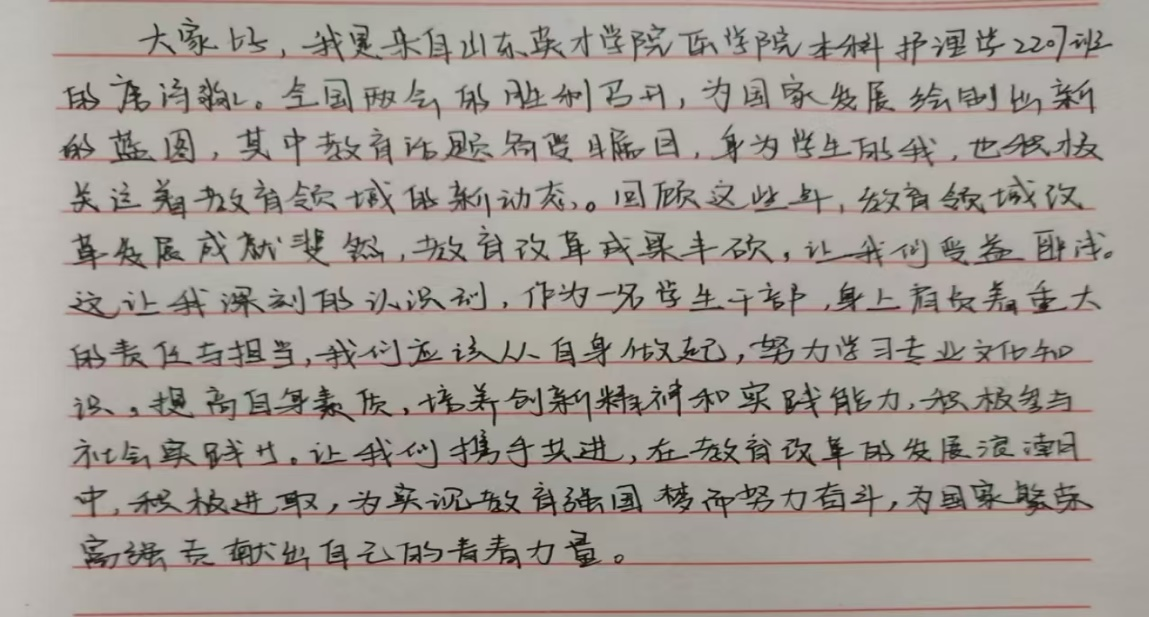 大家好，我是来自山东英才学院医学院本科护理学2207班
的唐诗。全国两会的胜利召开，为国家发展绘制出新
的蓝图，其中教育话题备受瞩目，身为学生的我，也积极
关注着教育领域的新动态。回顾这些年，教育领域改
革发展成就斐然，教育改革成果丰硕，让我们受益匪浅。
这让我深刻的认识到，作为一名学生干部，身上肩负着重大
的责任与担当，我们应该从自身做起，努力学习专业文化知
识，提高自身素质，培养创新精神和实践能力，积极参与
社会实践中。让我们携手共进，在教育改革的发展浪潮
中，积极进取，为实现教育强国梦而努力奋斗，为国家繁荣
富强贡献出自己的青春力量。